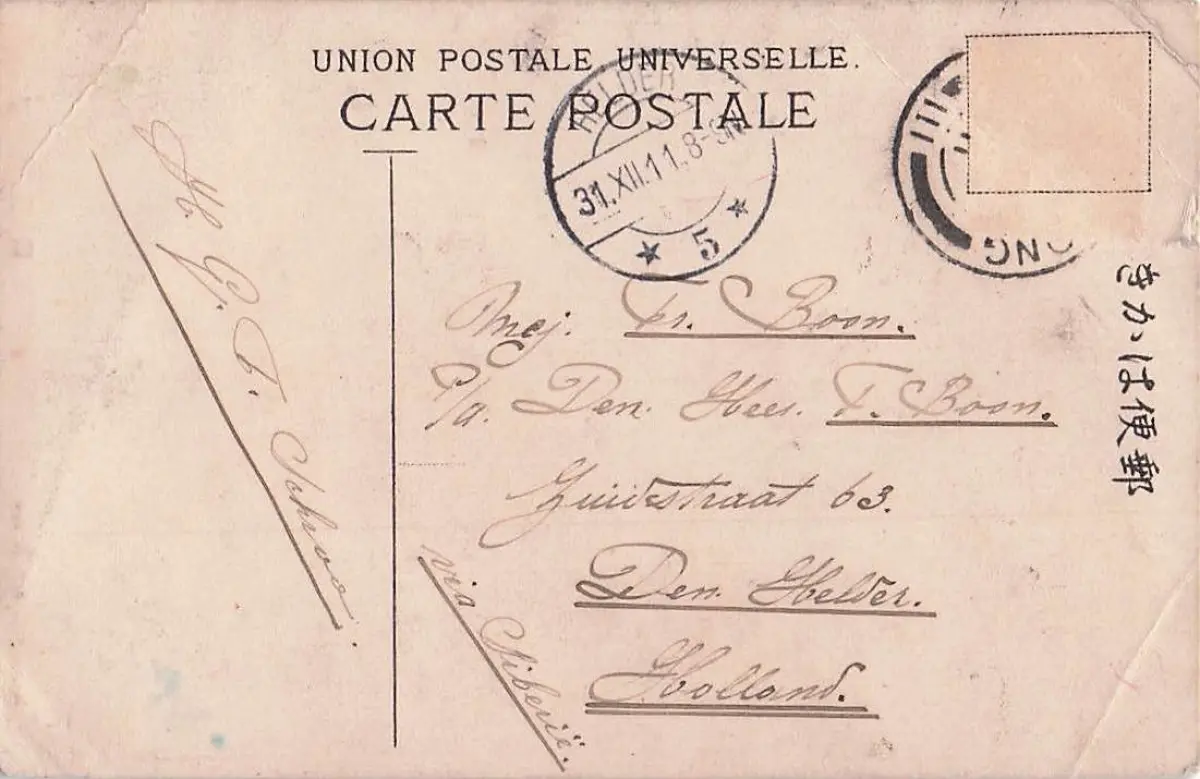 UNION POSTALE UNIVERSELLE.
CARTE POSTALE
HELDER
31.XII.11.8-9N
5
NG
きかは便郵
Mej. Tr. Boon.
P/a. Den Heer. T. Boon.
Zuidstraat 63.
Den Helder.
Holland.
via Siberië.
H. G. T. Schoo